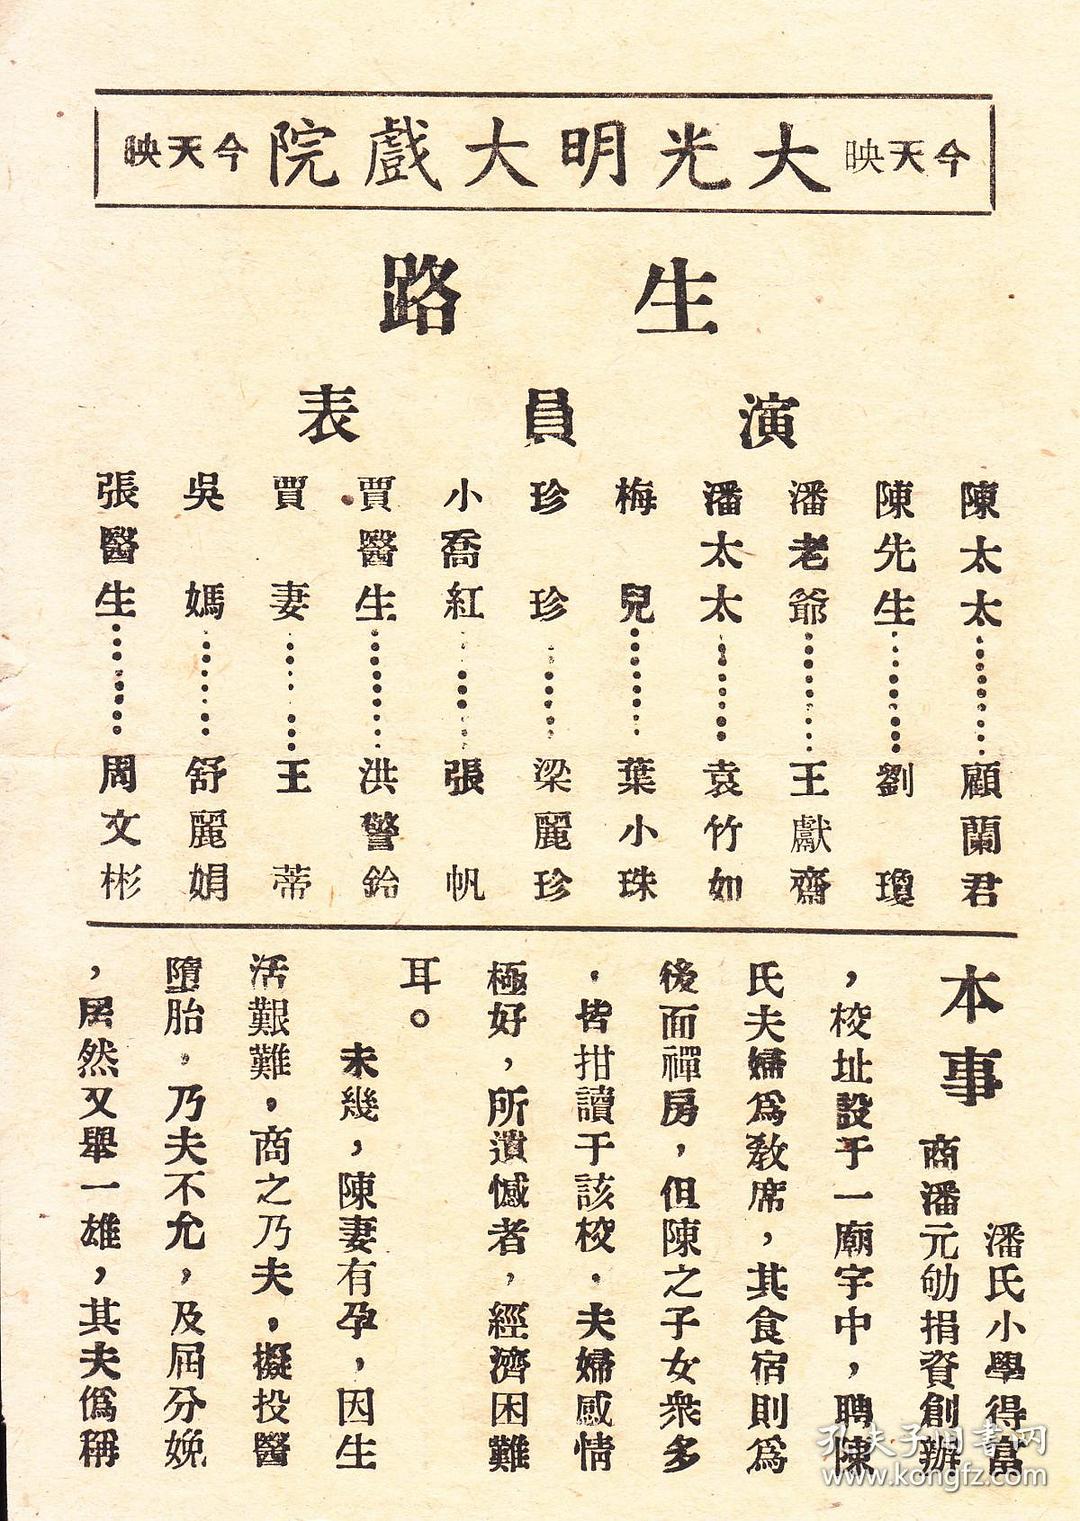 今天映 大光明大戲院 今天映
生路
演員表
陳太太⋯⋯⋯顧蘭君
陳先生⋯⋯⋯劉瓊
潘老爺⋯⋯⋯王獻齋
潘太太⋯⋯⋯袁竹如
梅兒⋯⋯⋯葉小珠
珍珍⋯⋯⋯梁麗珍
小喬紅⋯⋯⋯張帆
賈醫生⋯⋯⋯洪警鈴
賈妻⋯⋯⋯王蒂
吳媽⋯⋯⋯舒麗娟
張醫生⋯⋯⋯周文彬
本事
潘氏小學得富
商潘元劬捐資創辦
，校址設于一廟宇中，聘陳
氏夫婦爲教席，其食宿則爲
後面禪房，但陳之子女衆多
，皆拑讀于該校，夫婦感情
極好，所遺憾者，經濟困難
耳。
未幾，陳妻有孕，因生
活艱難，商之乃夫，擬投醫
墮胎，乃夫不允，及屆分娩
，居然又舉一雄，其夫僞稱
孔夫子旧书网
www.kongfz.com